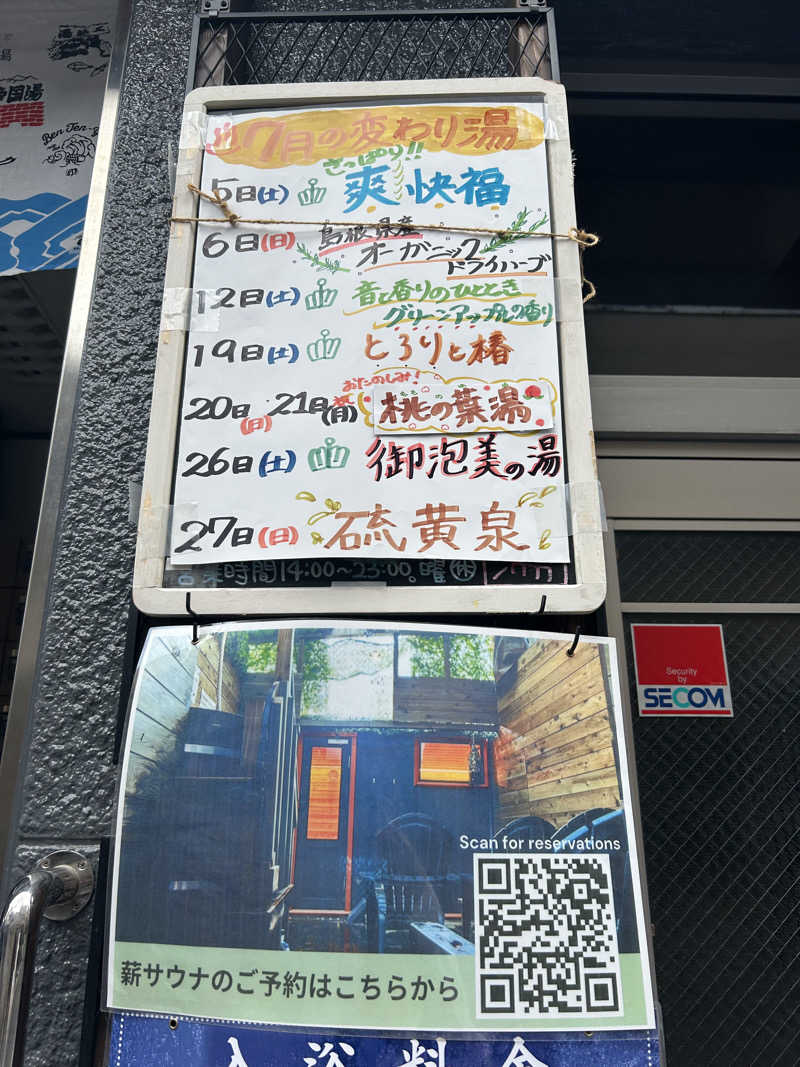 帝国湯
Ben Ten-
7月の変わり湯
さっぱり!!
5日(土) 爽快福
6日(日) 島根県産
オーガニック
ドライハーブ
12日(土) 音と香りのひととき
グリーンアップルの香り
19日(土) とろりと椿
おたのしみ!
20日(日) 21日(月)祝 桃の葉湯
26日(土) 御泡美の湯
27日(日) 硫黄泉
営業時間14:00~23:00 曜休
Security
by
SECOM
Scan for reservations
薪サウナのご予約はこちらから
入浴料金